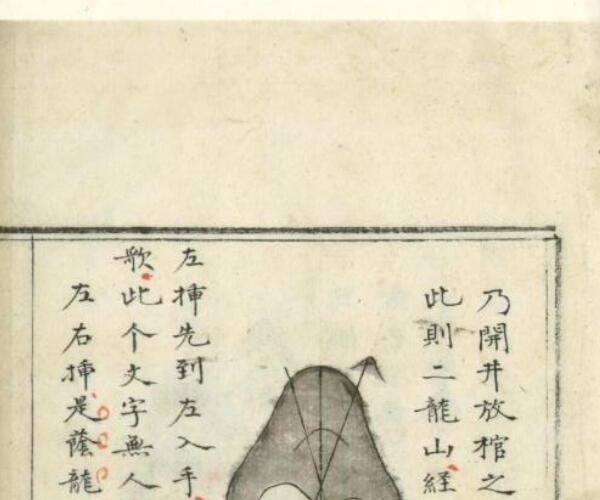 乃開井放棺之
此則二龍山経
左揷先到左入手
歌此个文字無人
左右揷是蔭龍